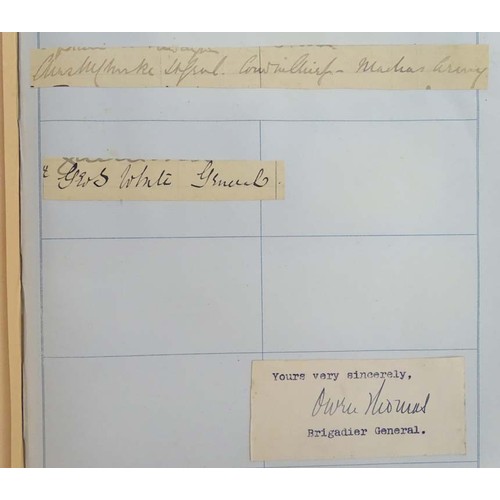 Chas Mansfield Clarke Lt Genl. Com in Chief - Madras Army
Geo S White General.
Yours very sincerely,
Owen Thomas
Brigadier General.